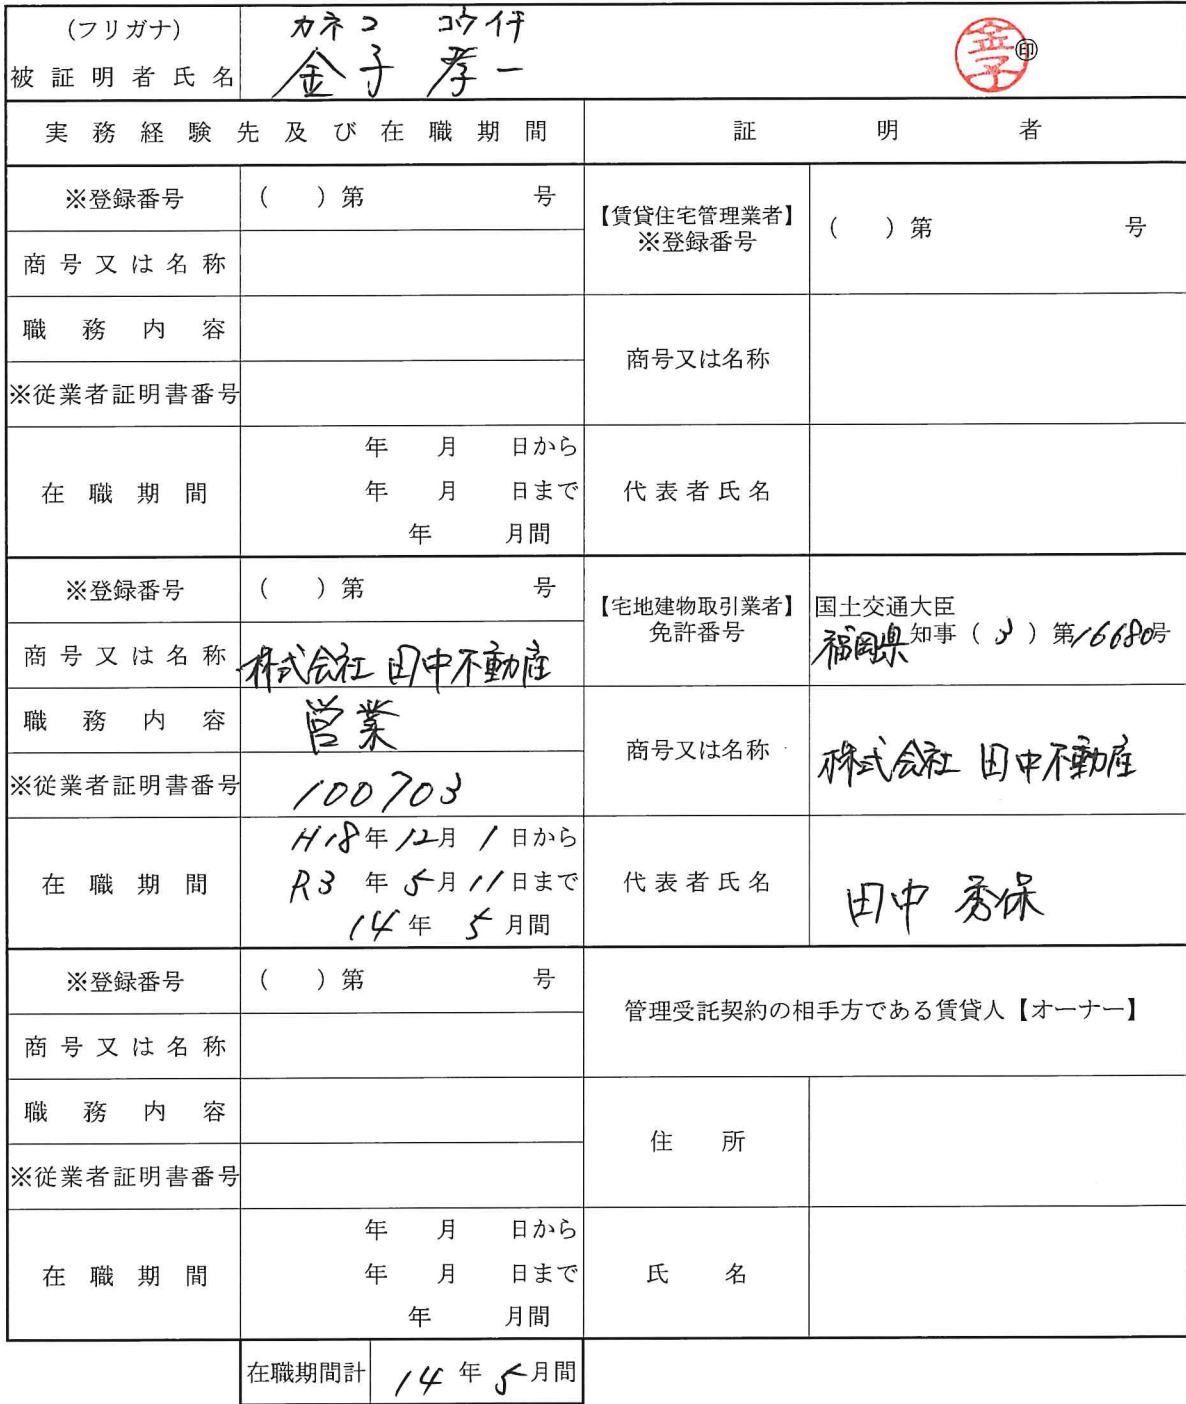 (フリガナ) カネコ コウイチ
被証明者氏名 金子 孝一 金子 ㊞
実務経験先及び在職期間 証明者
※登録番号 ( )第 号
【賃貸住宅管理業者】
※登録番号 ( )第 号
商号又は名称
職務内容
商号又は名称
※従業者証明書番号
在職期間
年 月 日から
年 月 日まで
年 月間
代表者氏名
※登録番号 ( )第 号
【宅地建物取引業者】
免許番号
国土交通大臣
福岡県知事(3)第16680号
商号又は名称 株式会社 田中不動産
職務内容 営業
商号又は名称 株式会社 田中不動産
※従業者証明書番号 100703
在職期間
H18年12月1日から
R3年5月11日まで
14年5月間
代表者氏名 田中 秀保
※登録番号 ( )第 号
管理受託契約の相手方である賃貸人【オーナー】
商号又は名称
職務内容
住所
※従業者証明書番号
在職期間
年 月 日から
年 月 日まで
年 月間
氏名
在職期間計 14年5月間